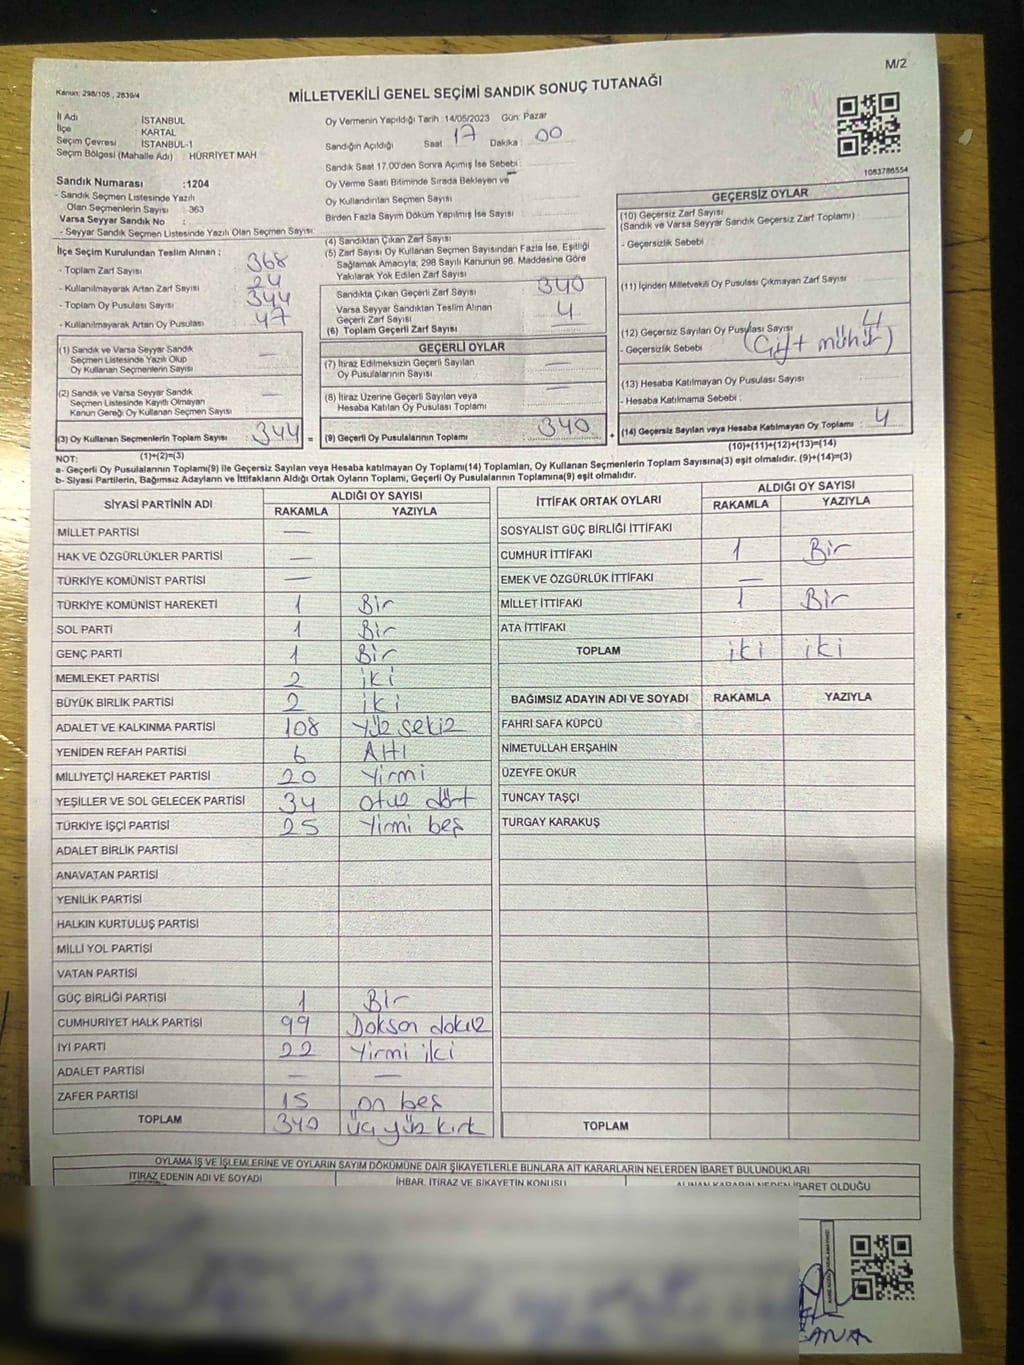 M/2
Kanun: 298/105 , 2839/4
MİLLETVEKİLİ GENEL SEÇİMİ SANDIK SONUÇ TUTANAĞI
İl Adı : İSTANBUL
İlçe : KARTAL
Seçim Çevresi : İSTANBUL-1
Seçim Bölgesi (Mahalle Adı) : HÜRRİYET MAH
Sandık Numarası :1204
- Sandık Seçmen Listesinde Yazılı
Olan Seçmenlerin Sayısı : 363
Varsa Seyyar Sandık No :
- Seyyar Sandık Seçmen Listesinde Yazılı Olan Seçmen Sayısı:
Oy Vermenin Yapıldığı Tarih :14/05/2023 Gün: Pazar
Sandığın Açıldığı Saat : 17 Dakika : 00
Sandık Saat 17.00'den Sonra Açımış İse Sebebi :
Oy Verme Saati Bitiminde Sırada Bekleyen ve
Oy Kullandırılan Seçmen Sayısı
Birden Fazla Sayım Döküm Yapılmış İse Sayısı :
1083786554
İlçe Seçim Kurulundan Teslim Alınan :
- Toplam Zarf Sayısı : 368
- Kullanılmayarak Artan Zarf Sayısı : 24
- Toplam Oy Pusulası Sayısı : 344
- Kullanılmayarak Artan Oy Pusulası : 47
(1) Sandık ve Varsa Seyyar Sandık
Seçmen Listesinde Yazılı Olup
Oy Kullanan Seçmenlerin Sayısı : —
(2) Sandık ve Varsa Seyyar Sandık
Seçmen Listesinde Kayıtlı Olmayan
Kanun Gereği Oy Kullanan Seçmen Sayısı : —
(3) Oy Kullanan Seçmenlerin Toplam Sayısı : 344 =
(1)+(2)=(3)
(4) Sandıktan Çıkan Zarf Sayısı :
(5) Zarf Sayısı Oy Kullanan Seçmen Sayısından Fazla İse, Eşitliği
Sağlamak Amacıyla, 298 Sayılı Kanunun 98. Maddesine Göre
Yakılarak Yok Edilen Zarf Sayısı
Sandıkta Çıkan Geçerli Zarf Sayısı : 340
Varsa Seyyar Sandıktan Teslim Alınan
Geçerli Zarf Sayısı : 4
(6) Toplam Geçerli Zarf Sayısı : —
GEÇERLİ OYLAR
(7) İtiraz Edilmeksizin Geçerli Sayılan
Oy Pusulalarının Sayısı : —
(8) İtiraz Üzerine Geçerli Sayılan veya
Hesaba Katılan Oy Pusulası Toplamı : —
(9) Geçerli Oy Pusulalarının Toplamı : 340 +
GEÇERSİZ OYLAR
(10) Geçersiz Zarf Sayısı
(Sandık ve Varsa Seyyar Sandık Geçersiz Zarf Toplamı) :
- Geçersizlik Sebebi
(11) İçinden Milletvekili Oy Pusulası Çıkmayan Zarf Sayısı :
(12) Geçersiz Sayılan Oy Pusulası Sayısı : 4
- Geçersizlik Sebebi : (Çift mühür)
(13) Hesaba Katılmayan Oy Pusulası Sayısı :
- Hesaba Katılmama Sebebi :
(14) Geçersiz Sayılan veya Hesaba Katılmayan Oy Toplamı : 4
(10)+(11)+(12)+(13)=(14)
NOT:
a- Geçerli Oy Pusulalarının Toplamı(9) ile Geçersiz Sayılan veya Hesaba katılmayan Oy Toplamı(14) Toplamları, Oy Kullanan Seçmenlerin Toplam Sayısına(3) eşit olmalıdır. (9)+(14)=(3)
b- Siyasi Partilerin, Bağımsız Adayların ve İttifakların Aldığı Ortak Oyların Toplamı, Geçerli Oy Pusulalarının Toplamına(9) eşit olmalıdır.
SİYASİ PARTİNİN ADI ALDIĞI OY SAYISI
RAKAMLA YAZIYLA
MİLLET PARTİSİ —
HAK VE ÖZGÜRLÜKLER PARTİSİ —
TÜRKİYE KOMÜNİST PARTİSİ —
TÜRKİYE KOMÜNİST HAREKETİ 1 Bir
SOL PARTİ 1 Bir
GENÇ PARTİ 1 Bir
MEMLEKET PARTİSİ 2 iki
BÜYÜK BİRLİK PARTİSİ 2 iki
ADALET VE KALKINMA PARTİSİ 108 Yüz sekiz
YENİDEN REFAH PARTİSİ 6 Altı
MİLLİYETÇİ HAREKET PARTİSİ 20 Yirmi
YEŞİLLER VE SOL GELECEK PARTİSİ 34 Otuz dört
TÜRKİYE İŞÇİ PARTİSİ 25 Yirmi beş
ADALET BİRLİK PARTİSİ
ANAVATAN PARTİSİ
YENİLİK PARTİSİ
HALKIN KURTULUŞ PARTİSİ
MİLLİ YOL PARTİSİ
VATAN PARTİSİ
GÜÇ BİRLİĞİ PARTİSİ 1 Bir
CUMHURİYET HALK PARTİSİ 99 Doksan dokuz
İYİ PARTİ 22 Yirmi iki
ADALET PARTİSİ — —
ZAFER PARTİSİ 15 on beş
TOPLAM 340 üç yüz kırk
İTTİFAK ORTAK OYLARI ALDIĞI OY SAYISI
RAKAMLA YAZIYLA
SOSYALİST GÜÇ BİRLİĞİ İTTİFAKI
CUMHUR İTTİFAKI 1 Bir
EMEK VE ÖZGÜRLÜK İTTİFAKI —
MİLLET İTTİFAKI 1 Bir
ATA İTTİFAKI
TOPLAM iki iki
BAĞIMSIZ ADAYIN ADI VE SOYADI RAKAMLA YAZIYLA
FAHRİ SAFA KÜPCÜ
NİMETULLAH ERŞAHİN
ÜZEYFE OKUR
TUNCAY TAŞÇI
TURGAY KARAKUŞ
TOPLAM
OYLAMA İŞ VE İŞLEMLERİNE VE OYLARIN SAYIM DÖKÜMÜNE DAİR ŞİKAYETLERLE BUNLARA AİT KARARLARIN NELERDEN İBARET BULUNDUKLARI
İTİRAZ EDENİN ADI VE SOYADI İHBAR, İTİRAZ VE ŞİKAYETİN KONUSU ALINAN KARARIN NEDEN İBARET OLDUĞU